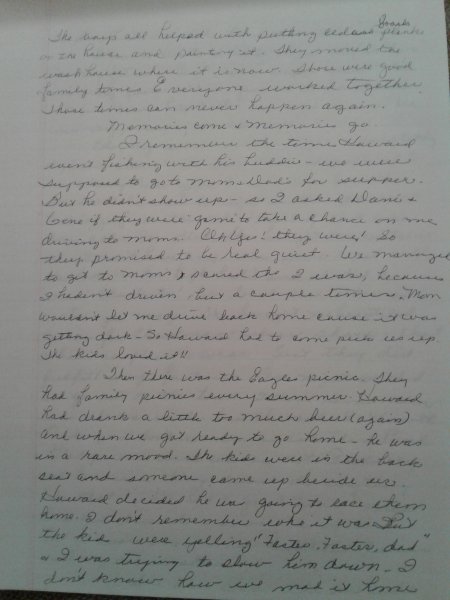 Boards
The boys all helped with putting planks
on the house and painting it. They moved the
wash house where it is now. Those were good
family times. Everyone worked together
Those times can never happen again.
Memories come & Memories go.
I remember the time Howard
went fishing with his buddies - we were
supposed to go to Mom & Dad's for supper.
But he didn't show up - so I asked Danis &
Gene if they were game to take a chance on me
driving to Moms. Oh Yes! they were! So
they promised to be real quiet. We managed
to get to Moms & scared tho I was, because
I hadn't driven but a couple times. Mom
wouldn't let me drive back home cause it was
getting dark - So Howard had to come pick us up.
The kids loved it!!
Then there was the Eagles picnic. They
had family picnics every summer. Howard
had drank a little too much beer (again)
and when we got ready to go home - he was
in a rare mood. The kids were in the back
seat and someone came up beside us.
Howard decided he was going to race them
home. I don't remember who it was But
the kids were yelling "Faster, Faster, dad"
& I was trying to slow him down. I
don't know how we mad it home